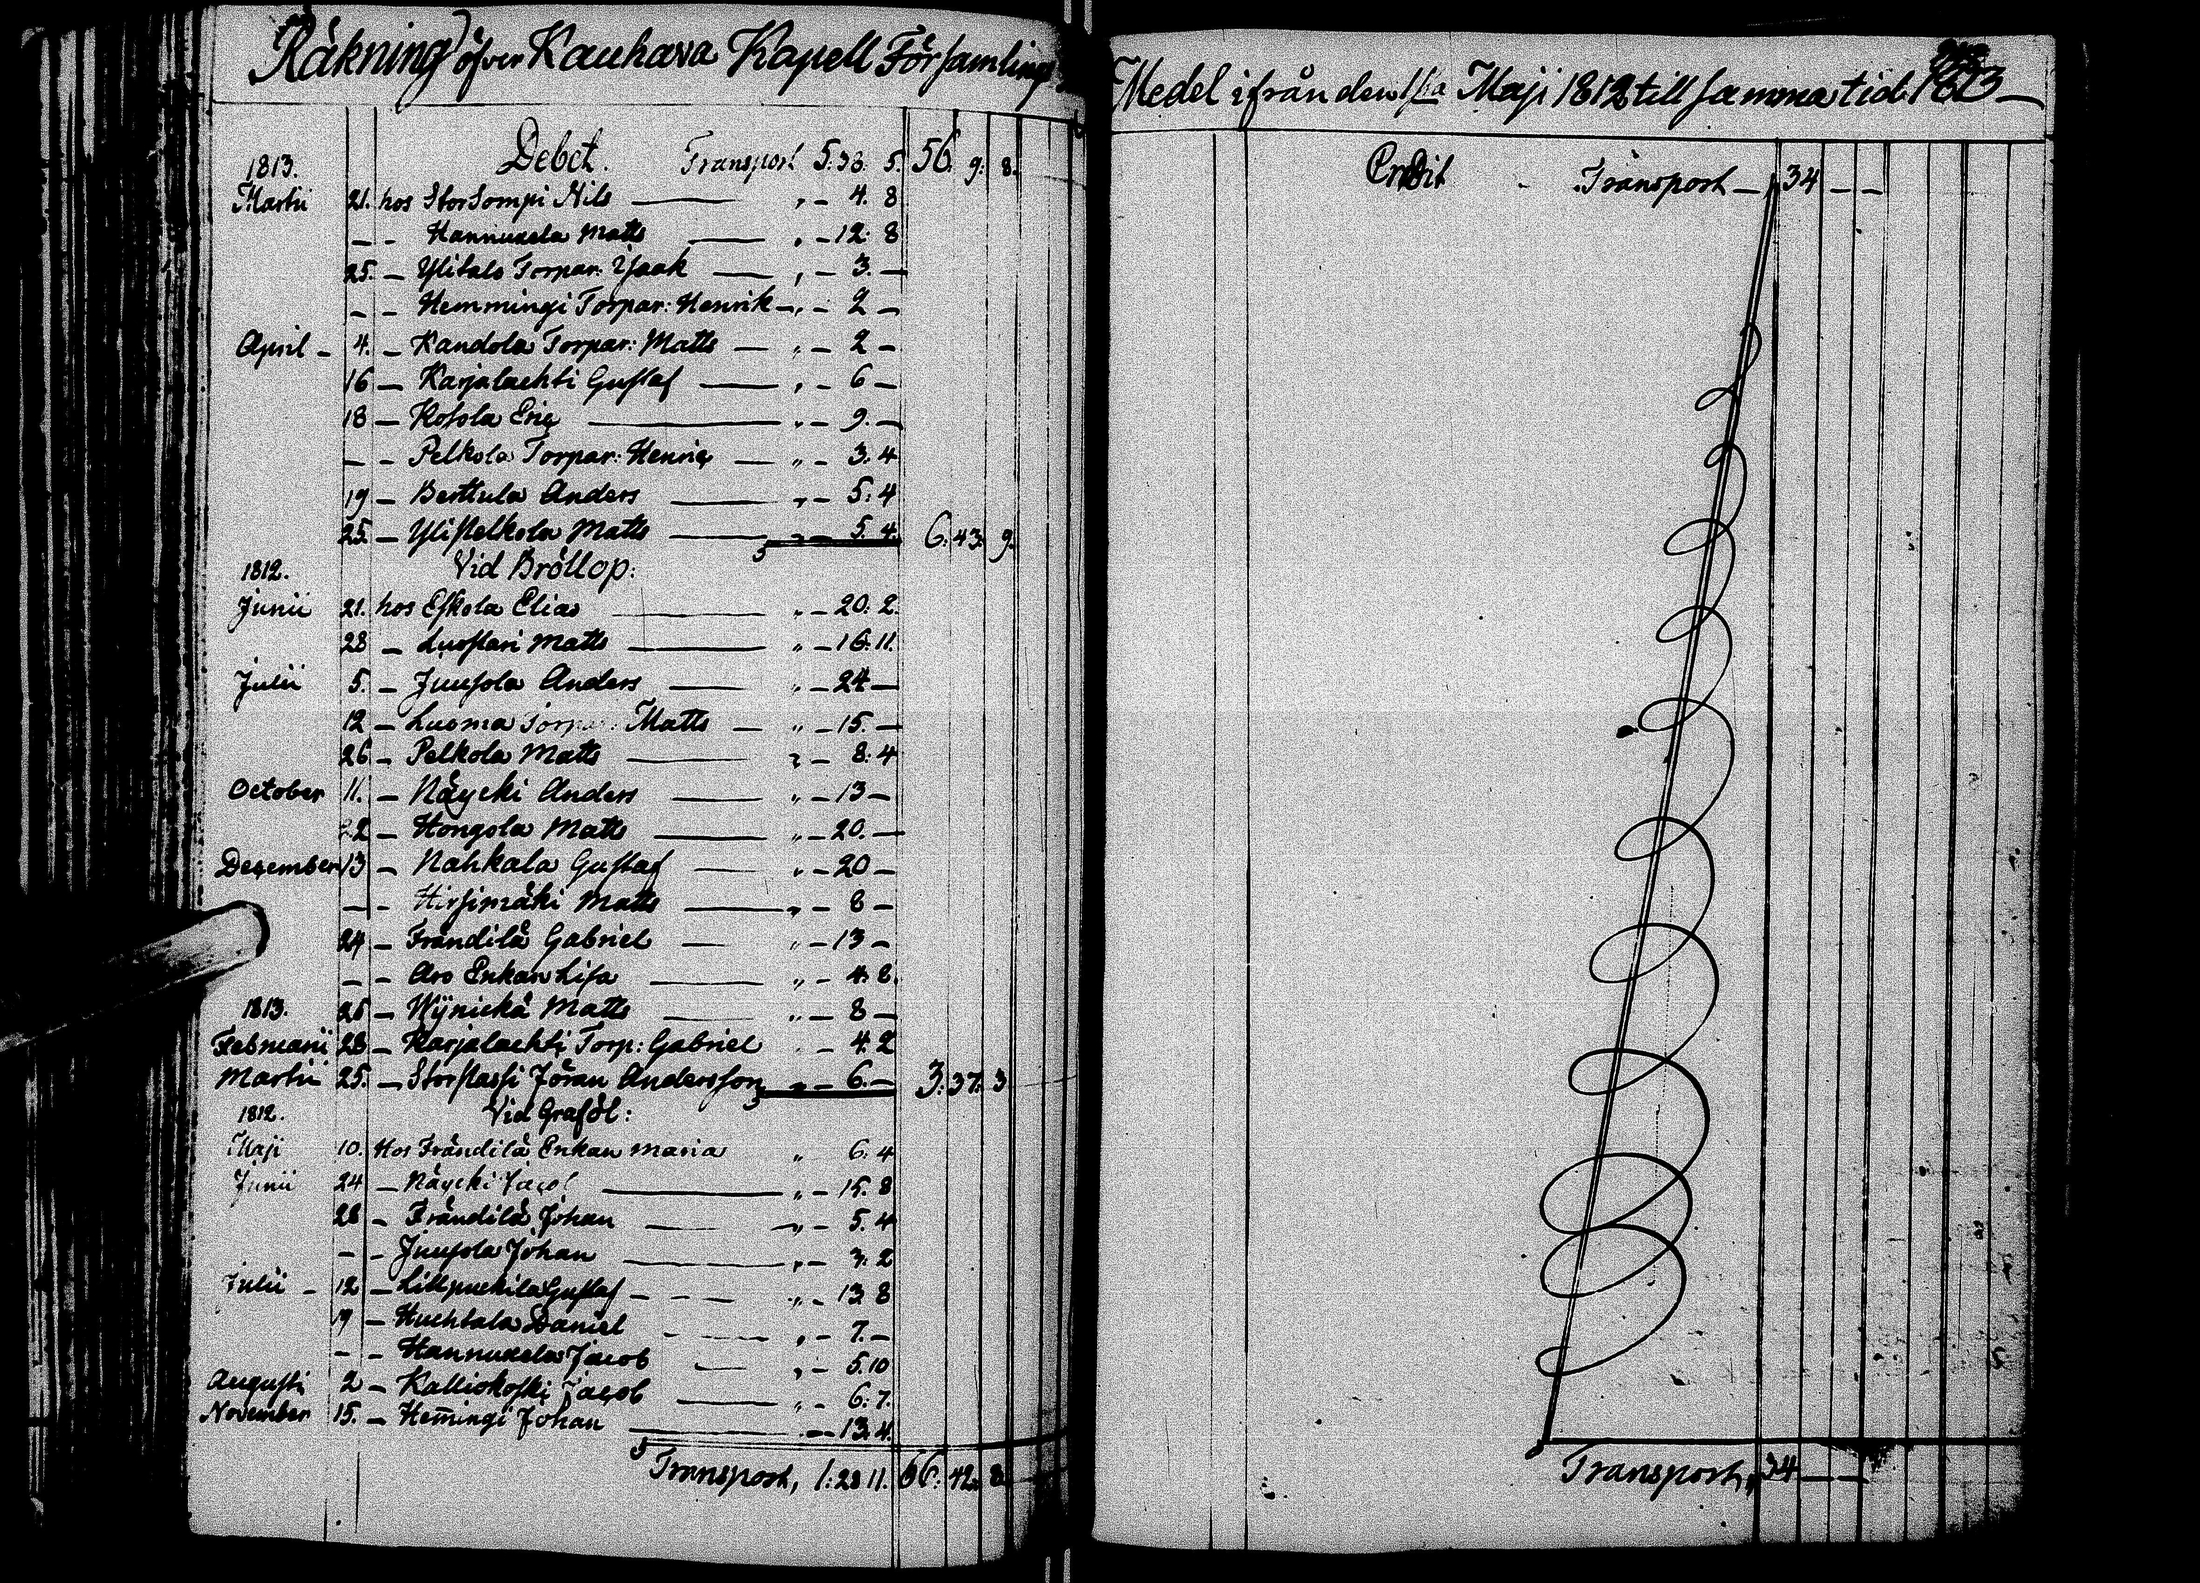 Räkning öfver Kauhava Kapell Församlings
1813. Debet. Transport 5:38: 5. 56. 9: 8.
Martii 21. hos StorSompi Nils — „ — 4. 8
— - Hannuxela Matts — „ — 12: 8
25. — Ylitalo Torpar: Isaak — „ — 3. —
— - Hemmingi Torpar: Henrik — „ - 2 —
April — 4. — Kandola Torpar: Matts — „ — 2 —
16 — Karjalachti Gustaf — „ - 6 —
18 — Kossla Eric — „ - 9. —
— - Pelkola Torpar: Henric — „ — 3. 4
19 — Berttula Anders — „ — 5: 4
25. — YliPelkola Matts — „ — 5. 4. 6. 43. 9.
1812. Vid Bröllop:
Junii 21. hos Eskola Elias — „ — 20: 2.
28 — Luostari Matts — „ — 16. 11.
Julii 5. — Juusola Anders — „ — 24 —
12 — Luoma Torpar: Matts — „ — 15. —
26 — Pelkola Matts — „ — 8: 4
October 11. — Näycki Anders — „ — 13 —
22 — Hongola Matts — „ — 20. —
December 13 — Nahkala Gustaf — „ — 20 —
— - Hirsimäki Matts — „ — 8 —
24 — Frändilä Gabriel — „ — 13 —
— - Aro Enkan Lisa — „ — 4. 2.
1813. 26 — Wÿnickä Matts — „ — 8 —
Februarii 28 — Karjalachti Torp: Gabriel - 4. 2
Martii 25. — Storpassi Jöran Andersson „ — 6. — 3. 37. 3
1812. Vid Graföl:
Maji 10. Hos Frändilä Enkan Maria „ 6: 4
Junii 24 — Näycki Jacob — „ — 15. 8
28 — Frändilä Johan — „ — 5. 4
— - Juusola Johan — „ — 3: 2
Julii — 12 — Lillpuckila Gustaf — „ - 13 8
19 — Huchtala Daniel — „ — 7. —
— - Hannuxela Jacob — „ — 5. 10
Augusti 2 — Kalliokoski Jacob — „ - 6: 7.
November 15. — Hem̄ingi Johan — 13. 4.
Transport, 1: 28 11. 66. 42. 8.
Medel ifrån den 1sta Maji 1812 till samma tid 1813 —
Credit Transport — 34 — —
Transport, 34 — —